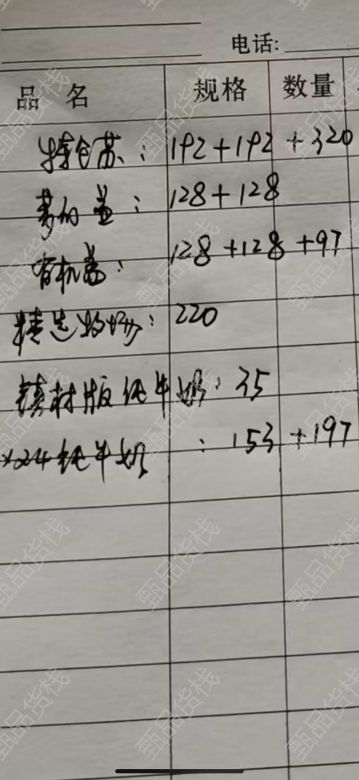 电话:
品 名 规格 数量
特仑苏: 192+192+320
梦幻盖: 128+128
有机盖: 128+128+97
精选奶: 220
纯牛奶: 35
×24纯牛奶: 153+197
甄品货栈